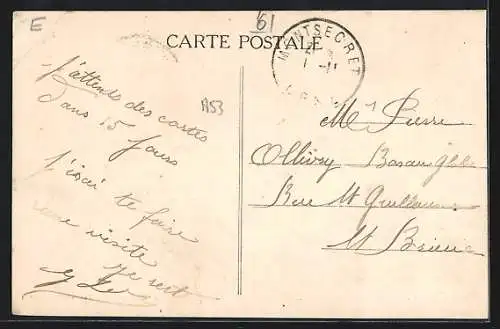 E
61
CARTE POSTALE
MONTSECRET
A53
J'attends des cartes
dans 15 jours
J'irai te faire
une visite
Mr Pierre
Ollivry
Rue St Guillaume
St Brieuc